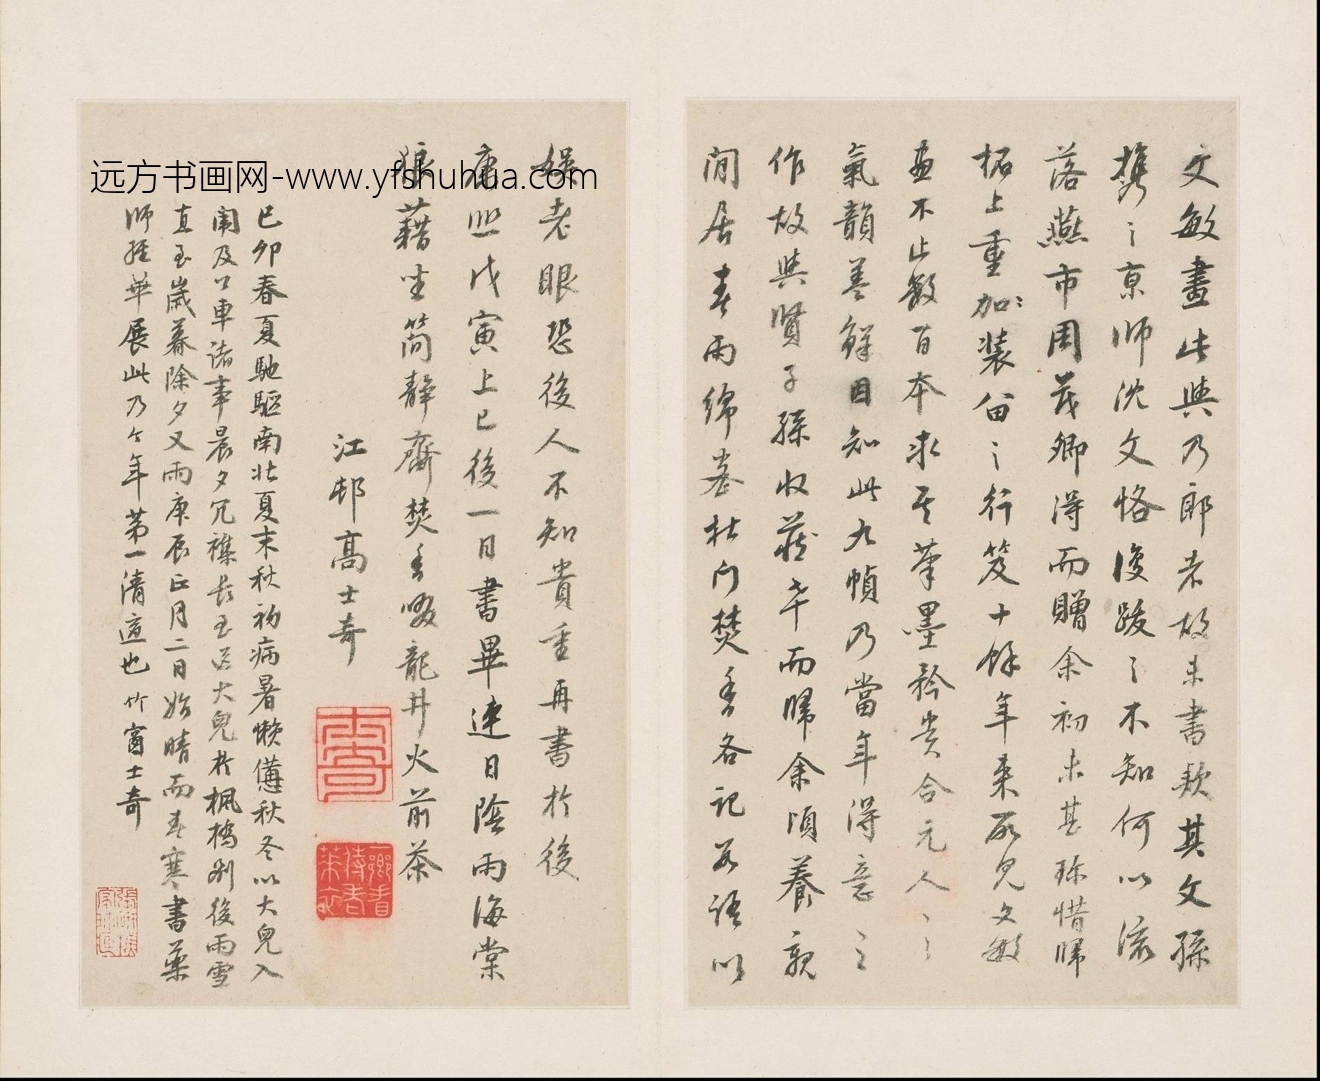 文敏畫此與乃郎者故未書款其文孫
携之京師沈文恪復跋之不知何以流
落燕市周茂卿得而贈余初未甚珍惜歸
柘上重加裝留之行笈十餘年来所见文敏
画不止數百本求其筆墨矜貴合元人之
氣韻蓋鮮因知此九幀乃當年得意之
作故與賢子孫收藏卒而歸余頃養親
閒居春雨綿卷杜门焚香各記数语以
娱老眼恐後人不知貴重再書於後
康熙戊寅上巳後一日書畢連日陰雨海棠
狼藉坐简静齋焚香啜龍井火前茶
江邨高士奇
己卯春夏馳驅南北夏末秋初病暑懒慵秋冬以大兒入
闈及公車諸事晨夕冗襍長至送大兒於楓橋别後雨雪
直至歲暮除夕又雨庚辰正月二日始晴而春寒書藥
师經華展此乃今年第一清适也竹窗士奇
士奇
远方书画网-www.yfshuhua.com